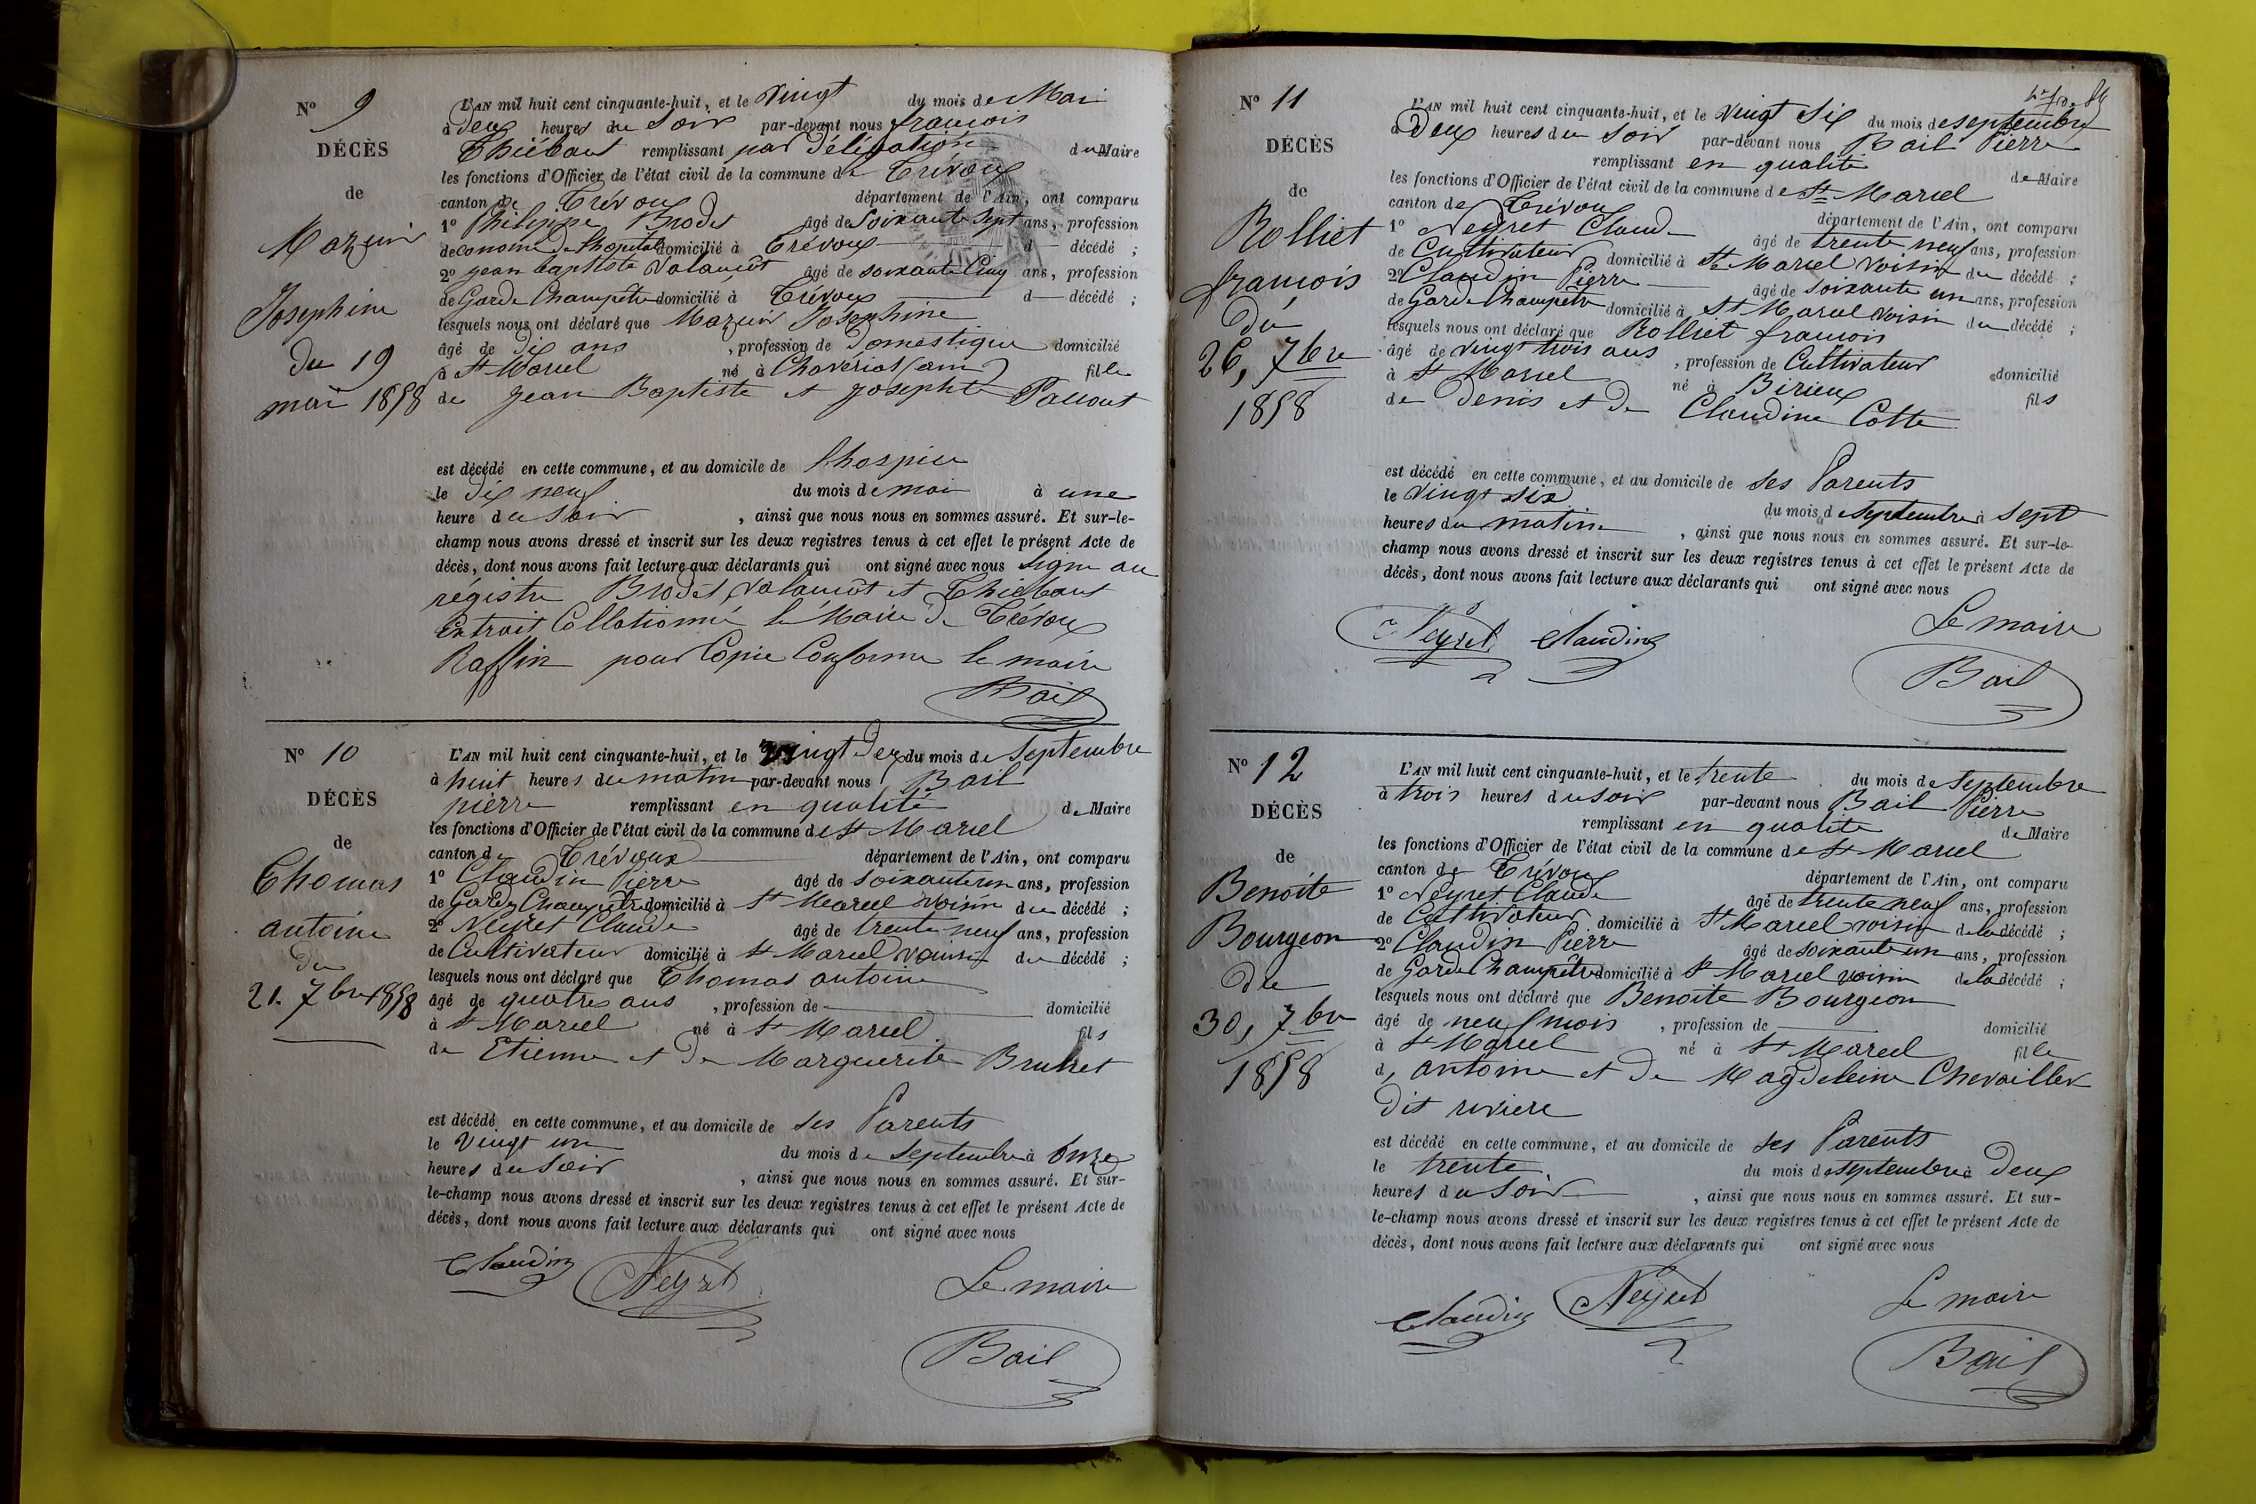 N° 9
DÉCÈS
de
Mazuir
Josephine
du 19
mai 1858
L'AN mil huit cent cinquante-huit, et le vingt du mois de Mai
à deux heures du Soir par-devant nous francois
Thiébaut remplissant par délégation du Maire
les fonctions d'Officier de l'état civil de la commune de Trévoux
canton de Trévoux département de l'Ain, ont comparu
1° Philippe Brodet âgé de Soixante Sept ans, profession
d'econome de l'hopital domicilié à Trévoux d décédé ;
2° jean baptiste Valancöt âgé de soixante Cinq ans, profession
de Garde Champêtre domicilié à Trévoux d décédé ;
lesquels nous ont déclaré que Mazuir Josephine
âgé de dix ans , profession de Domestique domicilié
à St Marcel né à Chavériat (ain) fille
de jean Baptiste et josephte
est décédé en cette commune, et au domicile de l'hospice
le dix neuf du mois de mai à une
heure du Soir , ainsi que nous nous en sommes assuré. Et sur-le-
champ nous avons dressé et inscrit sur les deux registres tenus à cet effet le présent Acte de
décès, dont nous avons fait lecture aux déclarants qui ont signé avec nous Signé au
régistre Brodet, Valancöt et Thiébaut
Extrait Collationné le Maire de Trévoux
Raffin pour Copie Conforme le maire
Bail
N° 10
DÉCÈS
de
Thomas
antoine
du
21. 7bre 1858
L'AN mil huit cent cinquante-huit, et le vingt deux du mois de Septembre
à huit heures du matin par-devant nous Bail
pierre remplissant en qualité de Maire
les fonctions d'Officier de l'état civil de la commune de St Marcel
canton de Trévoux département de l'Ain, ont comparu
1° Claudin Pierre âgé de soixante un ans, profession
de Garde Champêtre domicilié à St Marcel voisin du décédé ;
2° Neyret Claude âgé de trente neuf ans, profession
de Cultivateur domicilié à St Marcel voisin du décédé ;
lesquels nous ont déclaré que Thomas antoine
âgé de quatre ans , profession de domicilié
à St Marcel né à St Marcel fils
de Etienne et de Marguerite Brulhet
est décédé en cette commune, et au domicile de ses Parents
le vingt un du mois de septembre à onze
heures du Soir , ainsi que nous nous en sommes assuré. Et sur-
le-champ nous avons dressé et inscrit sur les deux registres tenus à cet effet le présent Acte de
décès, dont nous avons fait lecture aux déclarants qui ont signé avec nous
Claudin Neyret Le maire
Bail
84
N° 11
DÉCÈS
de
Rolliet
françois
du
26, 7bre
1858
L'AN mil huit cent cinquante-huit, et le vingt Six du mois de septembre
à Deux heures du Soir par-devant nous Bail Pierre
remplissant en qualité de Maire
les fonctions d'Officier de l'état civil de la commune de St Marcel
canton de Trévoux département de l'Ain, ont comparu
1° Neyret Claude âgé de trente neuf ans, profession
de Cultivateur domicilié à St Marcel voisin du décédé ;
2° Claudin Pierre âgé de soixante un ans, profession
de Garde Champêtre domicilié à St Marcel voisin du décédé ;
lesquels nous ont déclaré que Rolliet francois
âgé de vingt trois ans , profession de Cultivateur domicilié
à St Marcel né à Birieux fils
de Denis et de Claudine Cotte
est décédé en cette commune, et au domicile de ses Parents
le vingt six du mois de septembre à sept
heures du matin , ainsi que nous nous en sommes assuré. Et sur-le-
champ nous avons dressé et inscrit sur les deux registres tenus à cet effet le présent Acte de
décès, dont nous avons fait lecture aux déclarants qui ont signé avec nous
Neyret Claudin Le maire
Bail
N° 12
DÉCÈS
de
Benoite
Bourgeon
du
30, 7bre
1858
L'AN mil huit cent cinquante-huit, et le trente du mois de Septembre
à trois heures du soir par-devant nous Bail Pierre
remplissant en qualité de Maire
les fonctions d'Officier de l'état civil de la commune de St Marcel
canton de Trévoux département de l'Ain, ont comparu
1° Neyret Claude âgé de trente neuf ans, profession
de Cultivateur domicilié à St Marcel voisin de la décédé ;
2° Claudin Pierre âgé de soixante un ans, profession
de Garde Champêtre domicilié à St Marcel voisin de la décédé ;
lesquels nous ont déclaré que Benoite Bourgeon
âgé de neuf mois , profession de domicilié
à St Marcel né à St Marcel fille
d, antoine et de Magdeleine Chevailler
dit riviere
est décédé en cette commune, et au domicile de ses Parents
le trente du mois de septembre à deux
heures du Soir , ainsi que nous nous en sommes assuré. Et sur-
le-champ nous avons dressé et inscrit sur les deux registres tenus à cet effet le présent Acte de
décès, dont nous avons fait lecture aux déclarants qui ont signé avec nous
Claudin Neyret Le maire
Bail